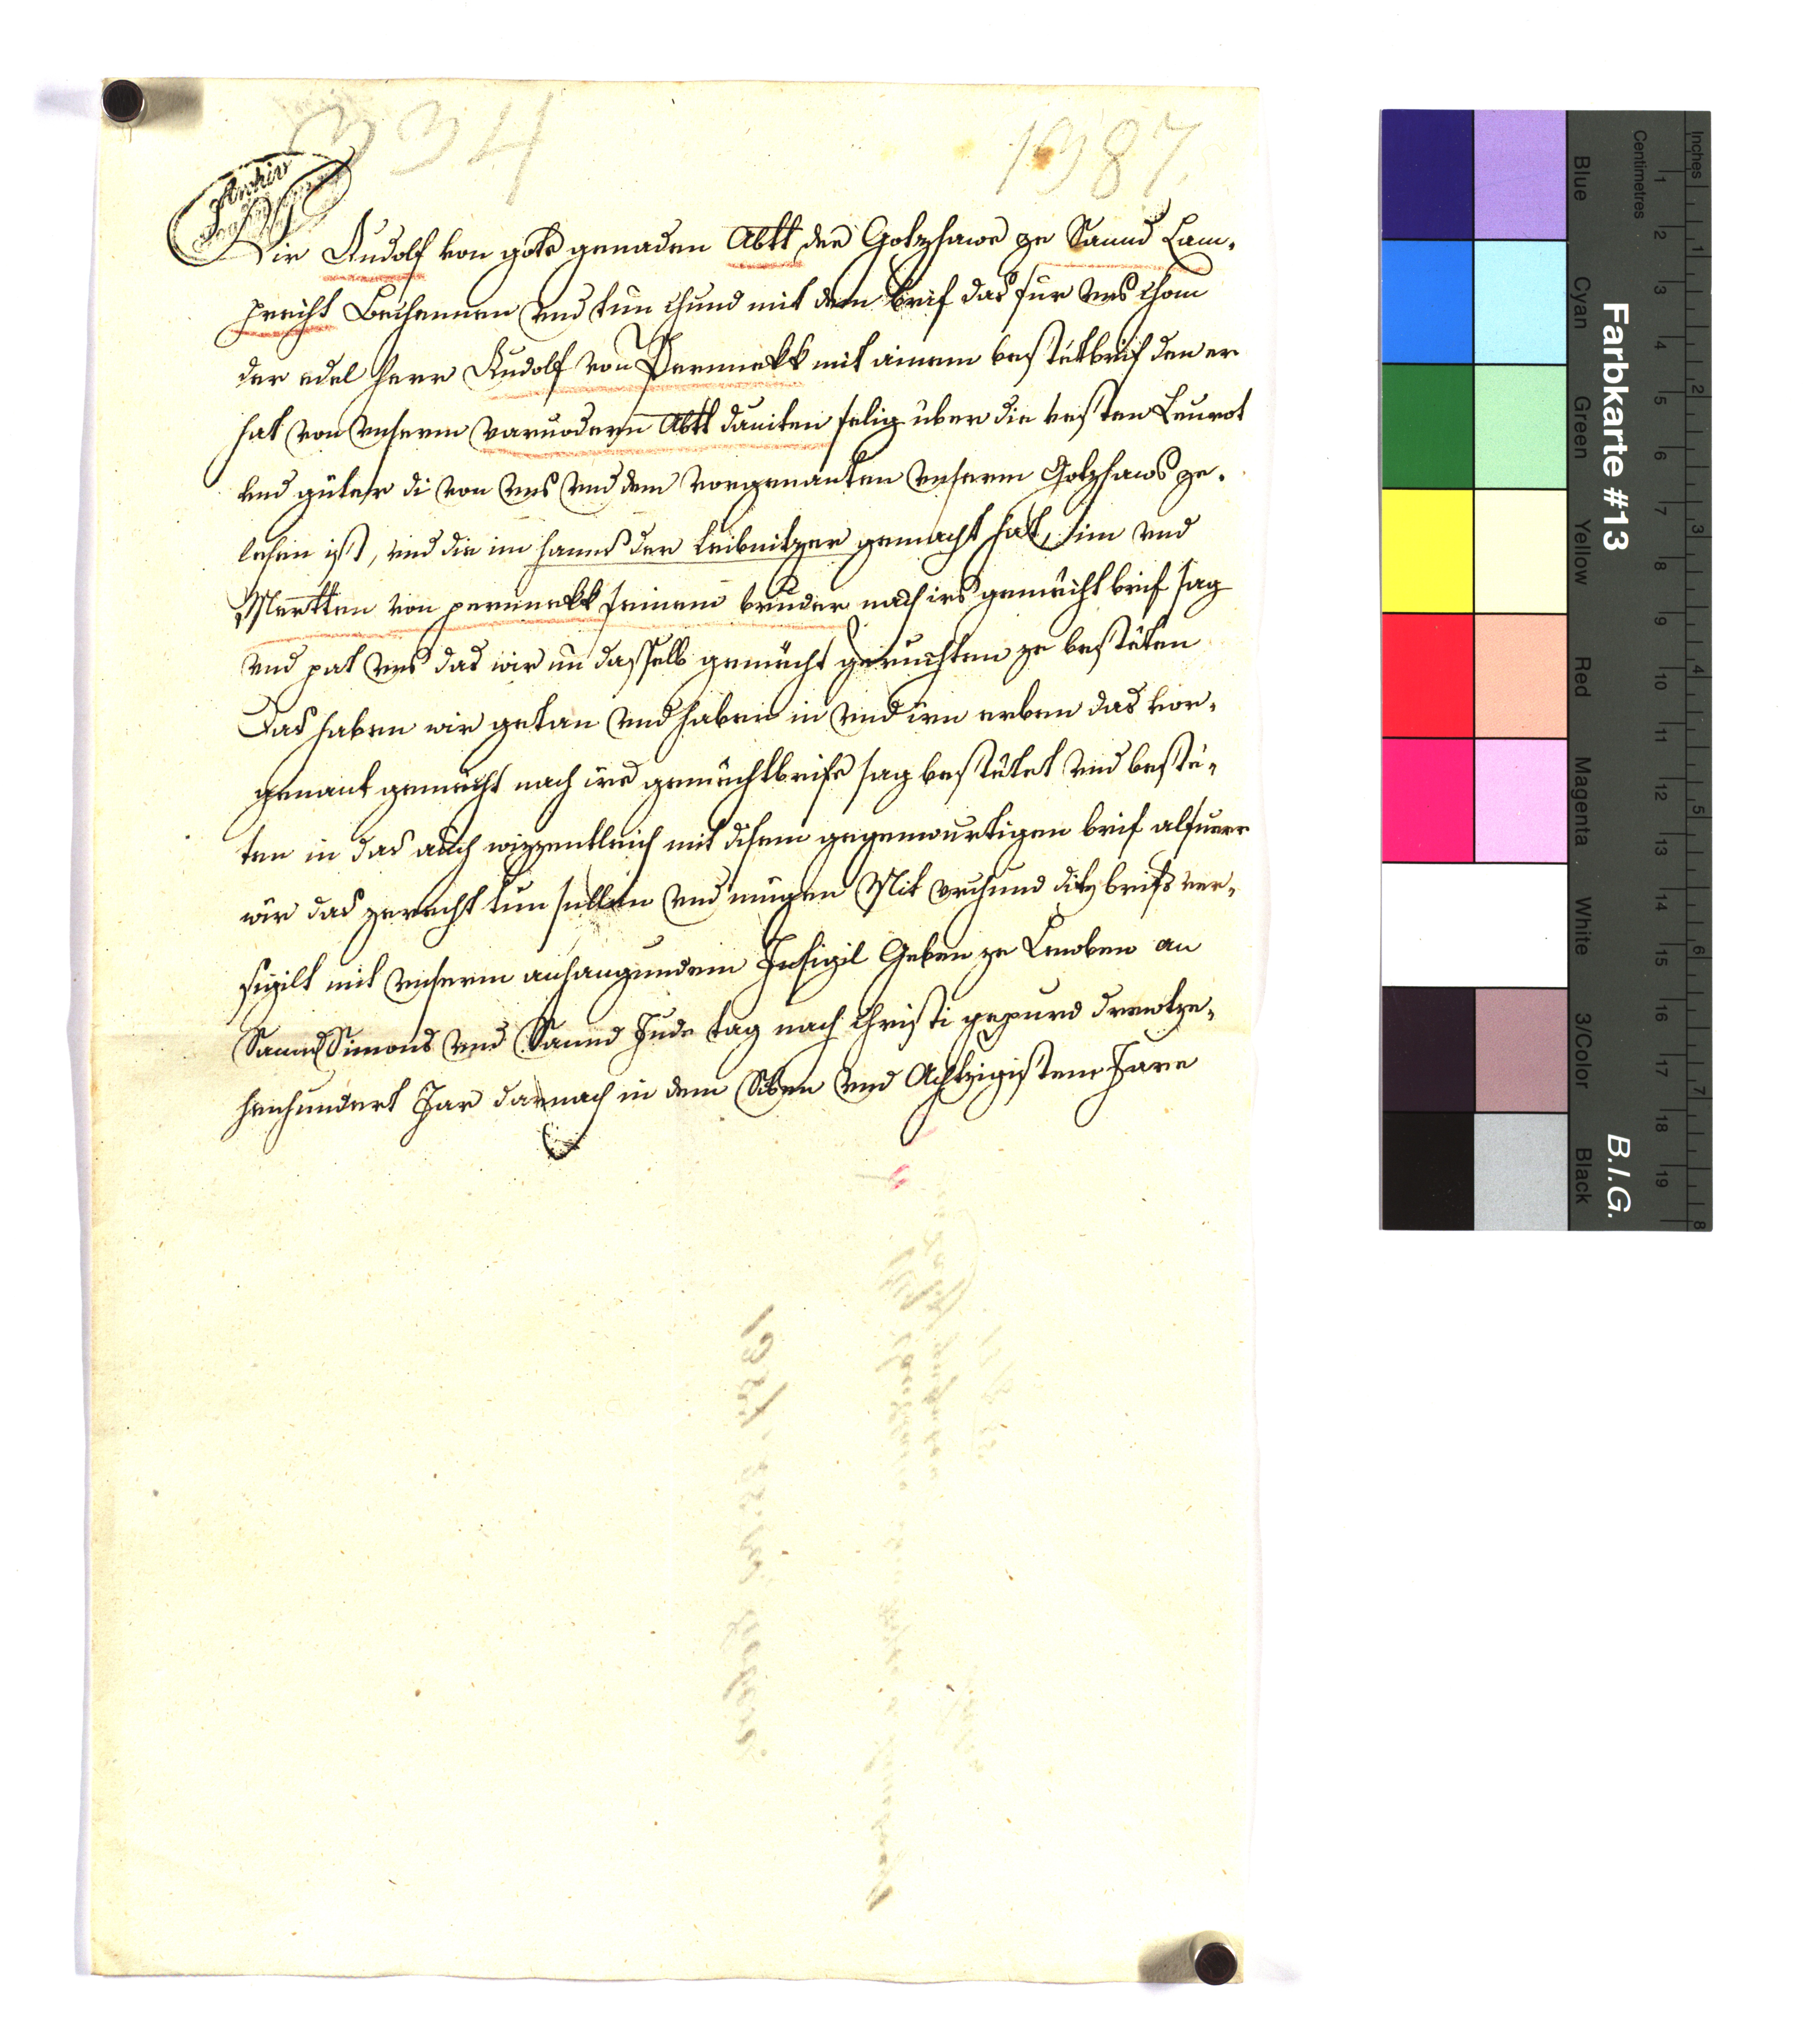 334
1387.
Archiv
Wir Rudolf von gots genaden Abtt des Gotzhaws ze Sannd Lam-
precht Bechennen vnd tun chund mit dem brif das für vns chom
der edel herr Rudolf von Pernnekk mit ainem bestätbrif den er
hat von vnserm vorvodern Abtt dauiten selig über die vesten Leurot
vnd güeter di von vns vnd dem vorgenanten vnserm Gotzhaws ze-
lehen ist, vnd die im hanns der leibnitzer gemacht hat, im vnd
Mertten von pernnekk seinem bruder nach irs gemächt brif sag
vnd pat vns das wir im dasselb gemächt geruchten ze bestäten
Das haben wir getan vnd haben in vnd irn erben das vor-
genant gemächt nach irs gemächtbrifs sag bestätet vnd bestä-
ten in das auch wizzentleich mit disem gegenwurtigen brif alsuerr
wir das zerecht tun sullen vnd mügen Mit vrchund ditz brifs ver-
sigilt mit vnserm anhangundem Insigil Geben ze Leuben an
Sannd Simons vnd Sannd Judes tag nach Christi gepurd drewtze-
henhundert Jar darnach in dem Siben vnd Achtzigistem Jare
Farbkarte #13
B.I.G.
Blue
Cyan
Green
Yellow
Red
Magenta
White
3/Color
Black
Centimetres
1 2 3 4 5 6 7 8 9 10 11 12 13 14 15 16 17 18 19
Inches
1 2 3 4 5 6 7 8